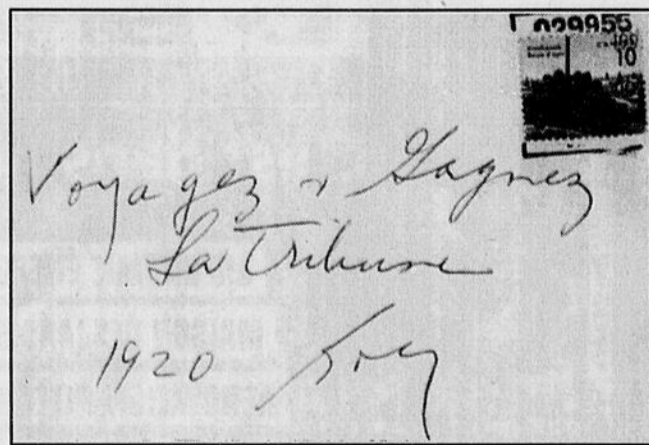 029955
10
Voyagez & Gagnez
La Tribune
1920 Roy